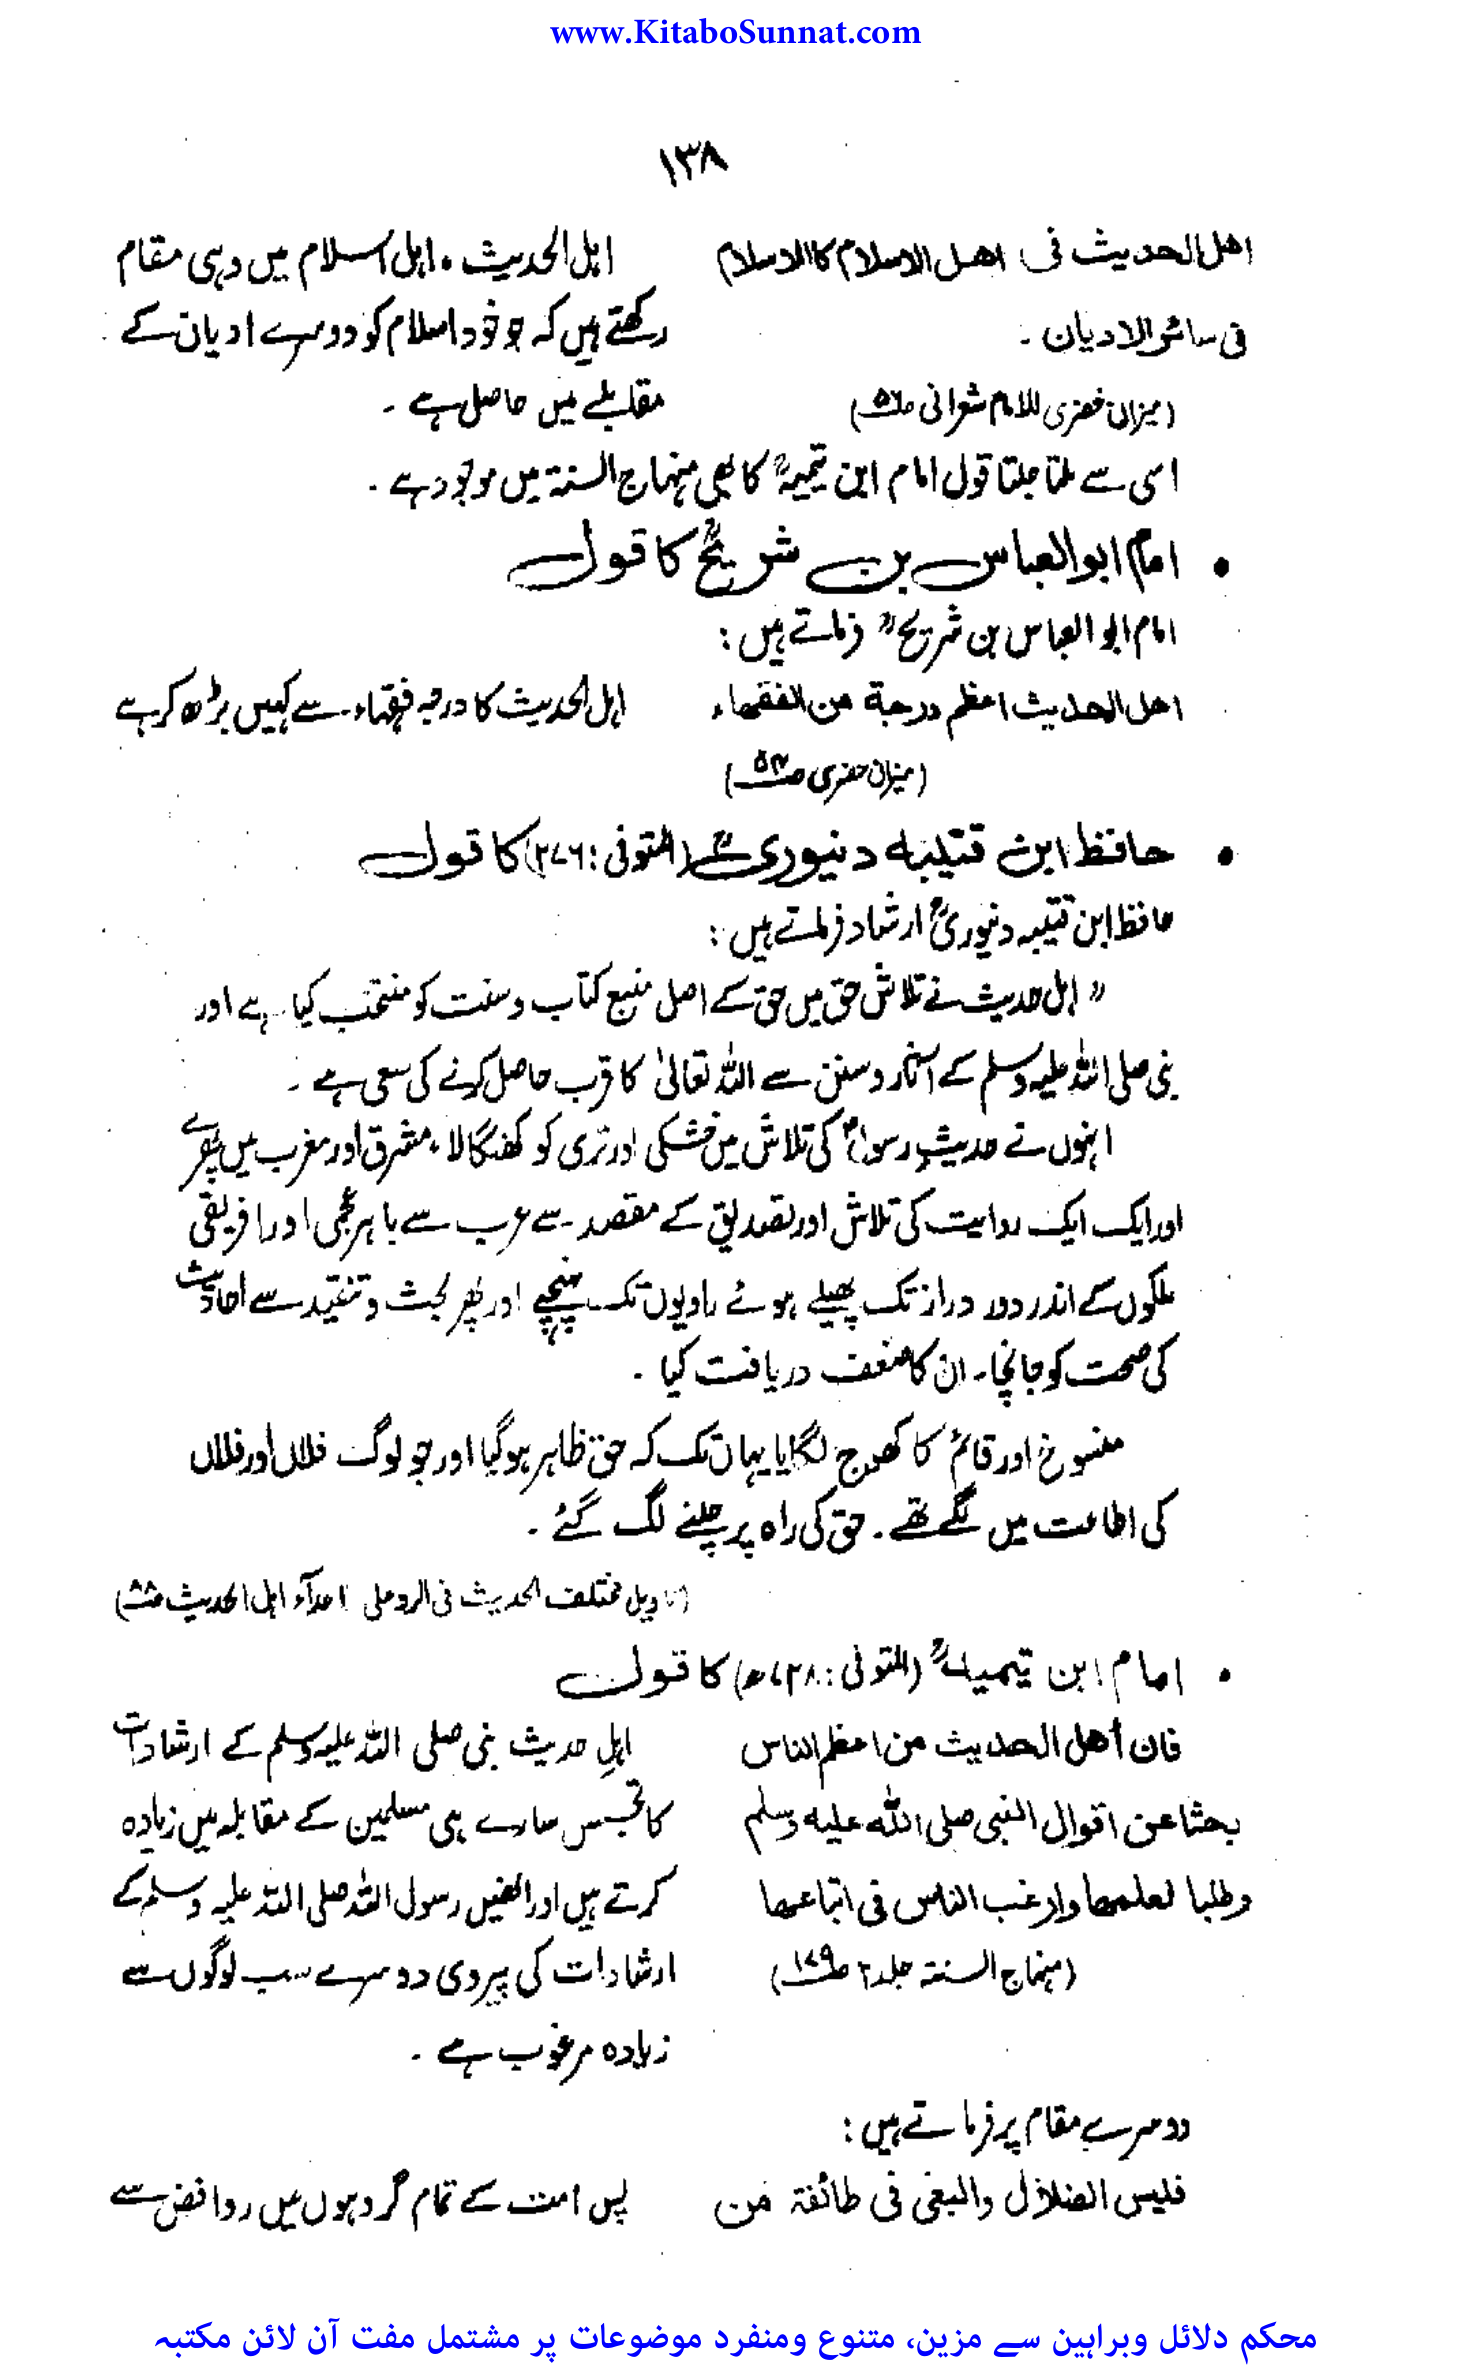 www.KitaboSunnat.com
١٣٨
اهل الحديث فى اهل الاسلام كالاسلام اہل الحدیث ۔ اہل اسلام میں وہی مقام
فى سائر الاديان ۔ رکھتے ہیں کہ جو خود اسلام کو دوسرے ادیان کے
(میزان خضری للامام شعرانی ص٥٦) مقابلے میں حاصل ہے ۔
اسی سے ملتا جلتا قول امام ابن تیمیہؒ کا بھی منہاج السنۃ میں موجود ہے ۔
• امام ابو العباس بن شریحؒ کا قول
امام ابو العباس بن شریحؒ فرماتے ہیں :
اهل الحديث اعظم درجة من الفقهاء اہل الحدیث کا درجہ فقہاء سے کہیں بڑھ کر ہے
(میزان خضری ص)
• حافظ ابن قتیبہ دینوریؒ (المتوفی : ۲۷۶) کا قول
حافظ ابن قتیبہ دینوریؒ ارشاد فرماتے ہیں :
" اہل حدیث نے تلاش حق میں حق کے اصل منبع کتاب و سنت کو منتخب کیا ہے اور
نبی صلی اللہ علیہ وسلم کے آثار و سنن سے اللہ تعالیٰ کا قرب حاصل کرنے کی سعی ہے ۔
انہوں نے حدیثِ رسولؐ کی تلاش میں خشکی اور تری کو کھنگالا ، مشرق اور مغرب میں پھرے
اور ایک ایک روایت کی تلاش اور تصدیق کے مقصد سے عرب سے باہر عجمی اور افریقی
ملکوں کے اندر دور دراز تک پھیلے ہوئے راویوں تک پہنچے اور پھر بحث و تنقید سے احادیث
کی صحت کو جانچا ۔ ان کا ضعف دریافت کیا ۔
منسوخ اور قائم کا کھوج لگایا یہاں تک کہ حق ظاہر ہو گیا اور جو لوگ فلاں اور فلاں
کی اطاعت میں لگے تھے ۔ حق کی راہ پر چلنے لگ گئے ۔
(تاویل مختلف الحدیث فی الرد علی اعدآء اہل الحدیث ص٨٨)
• امام ابن تیمیہؒ (المتوفی : ۷۲۸ھ) کا قول
فان أهل الحديث من اعظم الناس اہلِ حدیث نبی صلی اللہ علیہ وسلم کے ارشادات
بحثا عن اقوال النبى صلى الله عليه وسلم کا تجسس سارے ہی مسلمین کے مقابلہ میں زیادہ
وطلبا لعلمها وارغب الناس فى اتباعها کرتے ہیں اور انھیں رسول اللہ صلی اللہ علیہ وسلم کے
(منہاج السنۃ جلد ۲ ص۱۷۹) ارشادات کی پیروی دوسرے سب لوگوں سے
زیادہ مرغوب ہے ۔
دوسرے مقام پر فرماتے ہیں :
فليس الضلال والبغى فى طائفة من پس امت کے تمام گروہوں میں روافض سے
محکم دلائل وبراہین سے مزین، متنوع ومنفرد موضوعات پر مشتمل مفت آن لائن مکتبہ